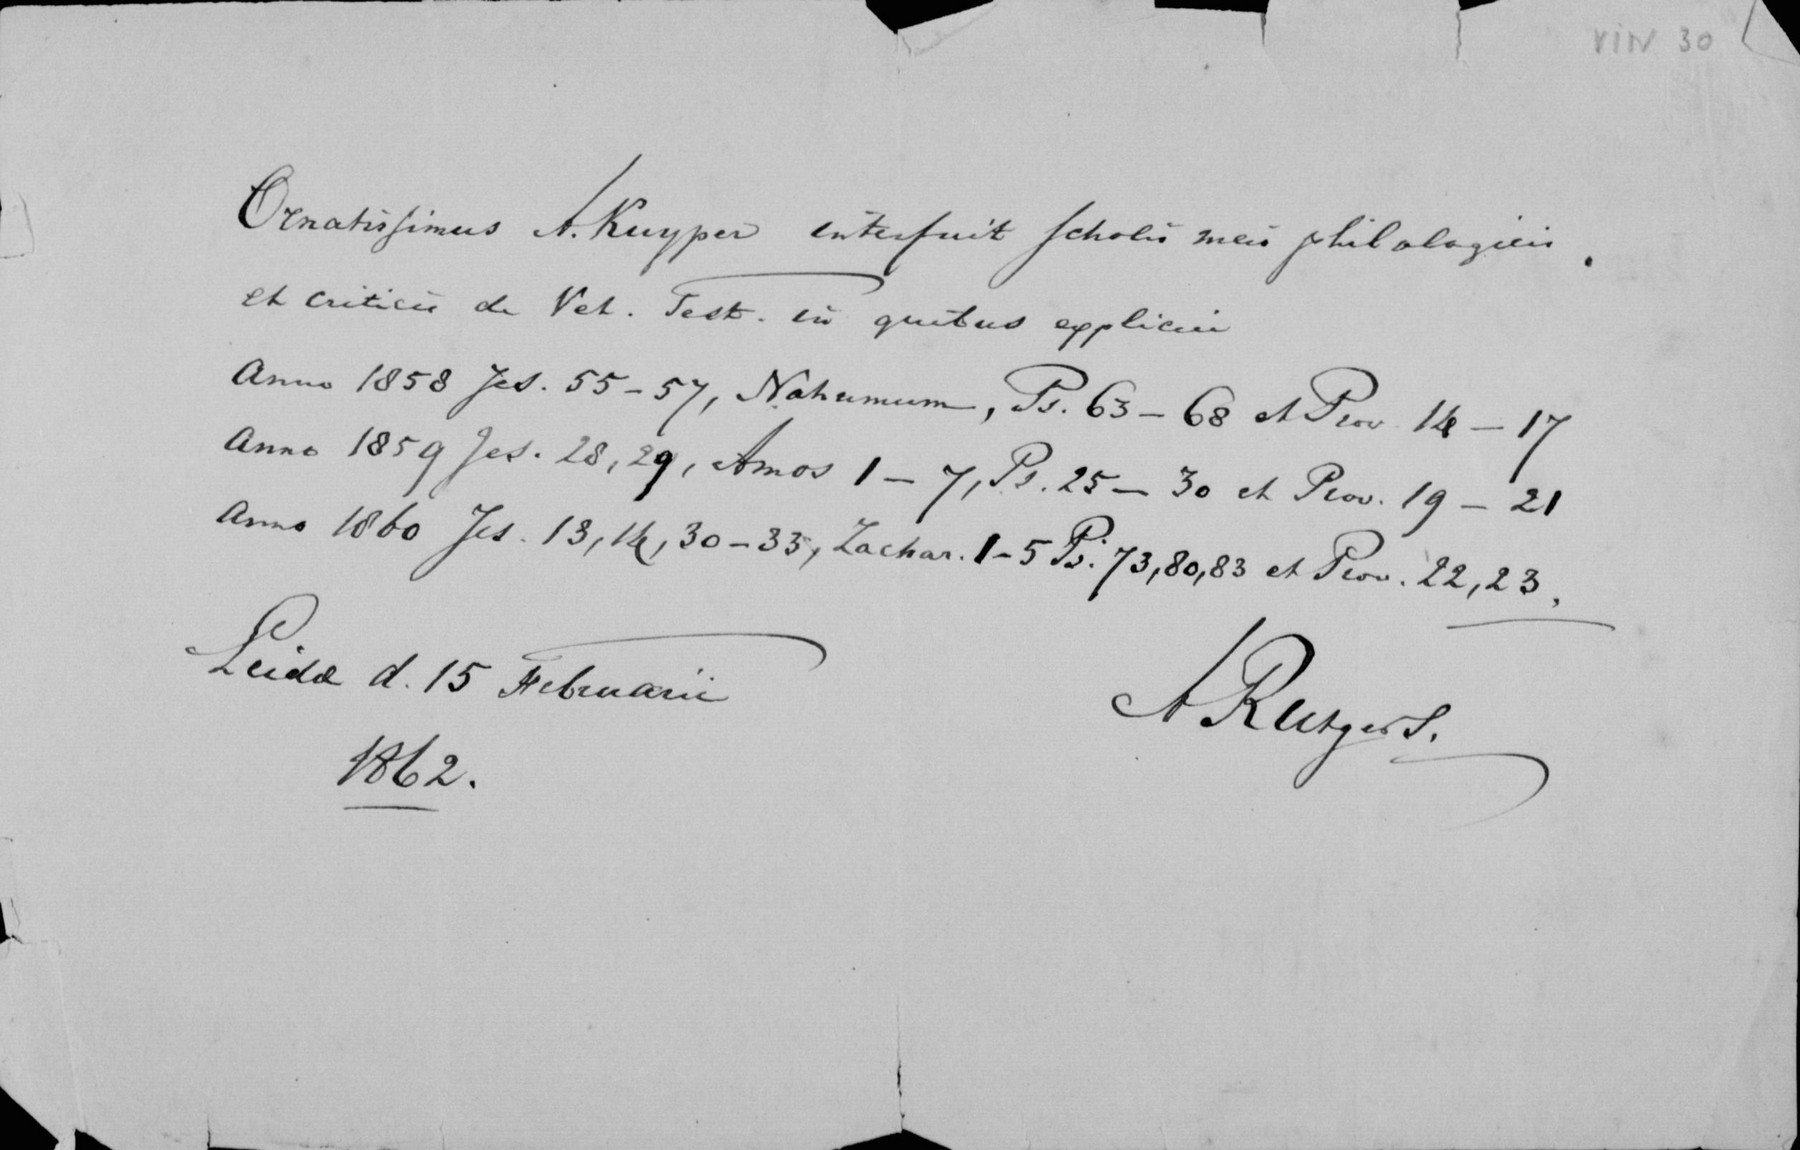 VIN 30
Ornatissimus A. Kuyper interfuit scholis meis philologicis
et criticis de Vet. Test. in quibus explicui
Anno 1858 Jes. 55–57, Nahumum, Ps. 63–68 et Prov. 14–17
Anno 1859 Jes. 28, 29, Amos 1–7, Ps. 25–30 et Prov. 19–21
Anno 1860 Jes. 13, 14, 30–33, Zachar. 1–5 Ps. 73, 80, 83 et Prov. 22, 23.
Leidæ d. 15 Februarii
1862.
A Rutgers.